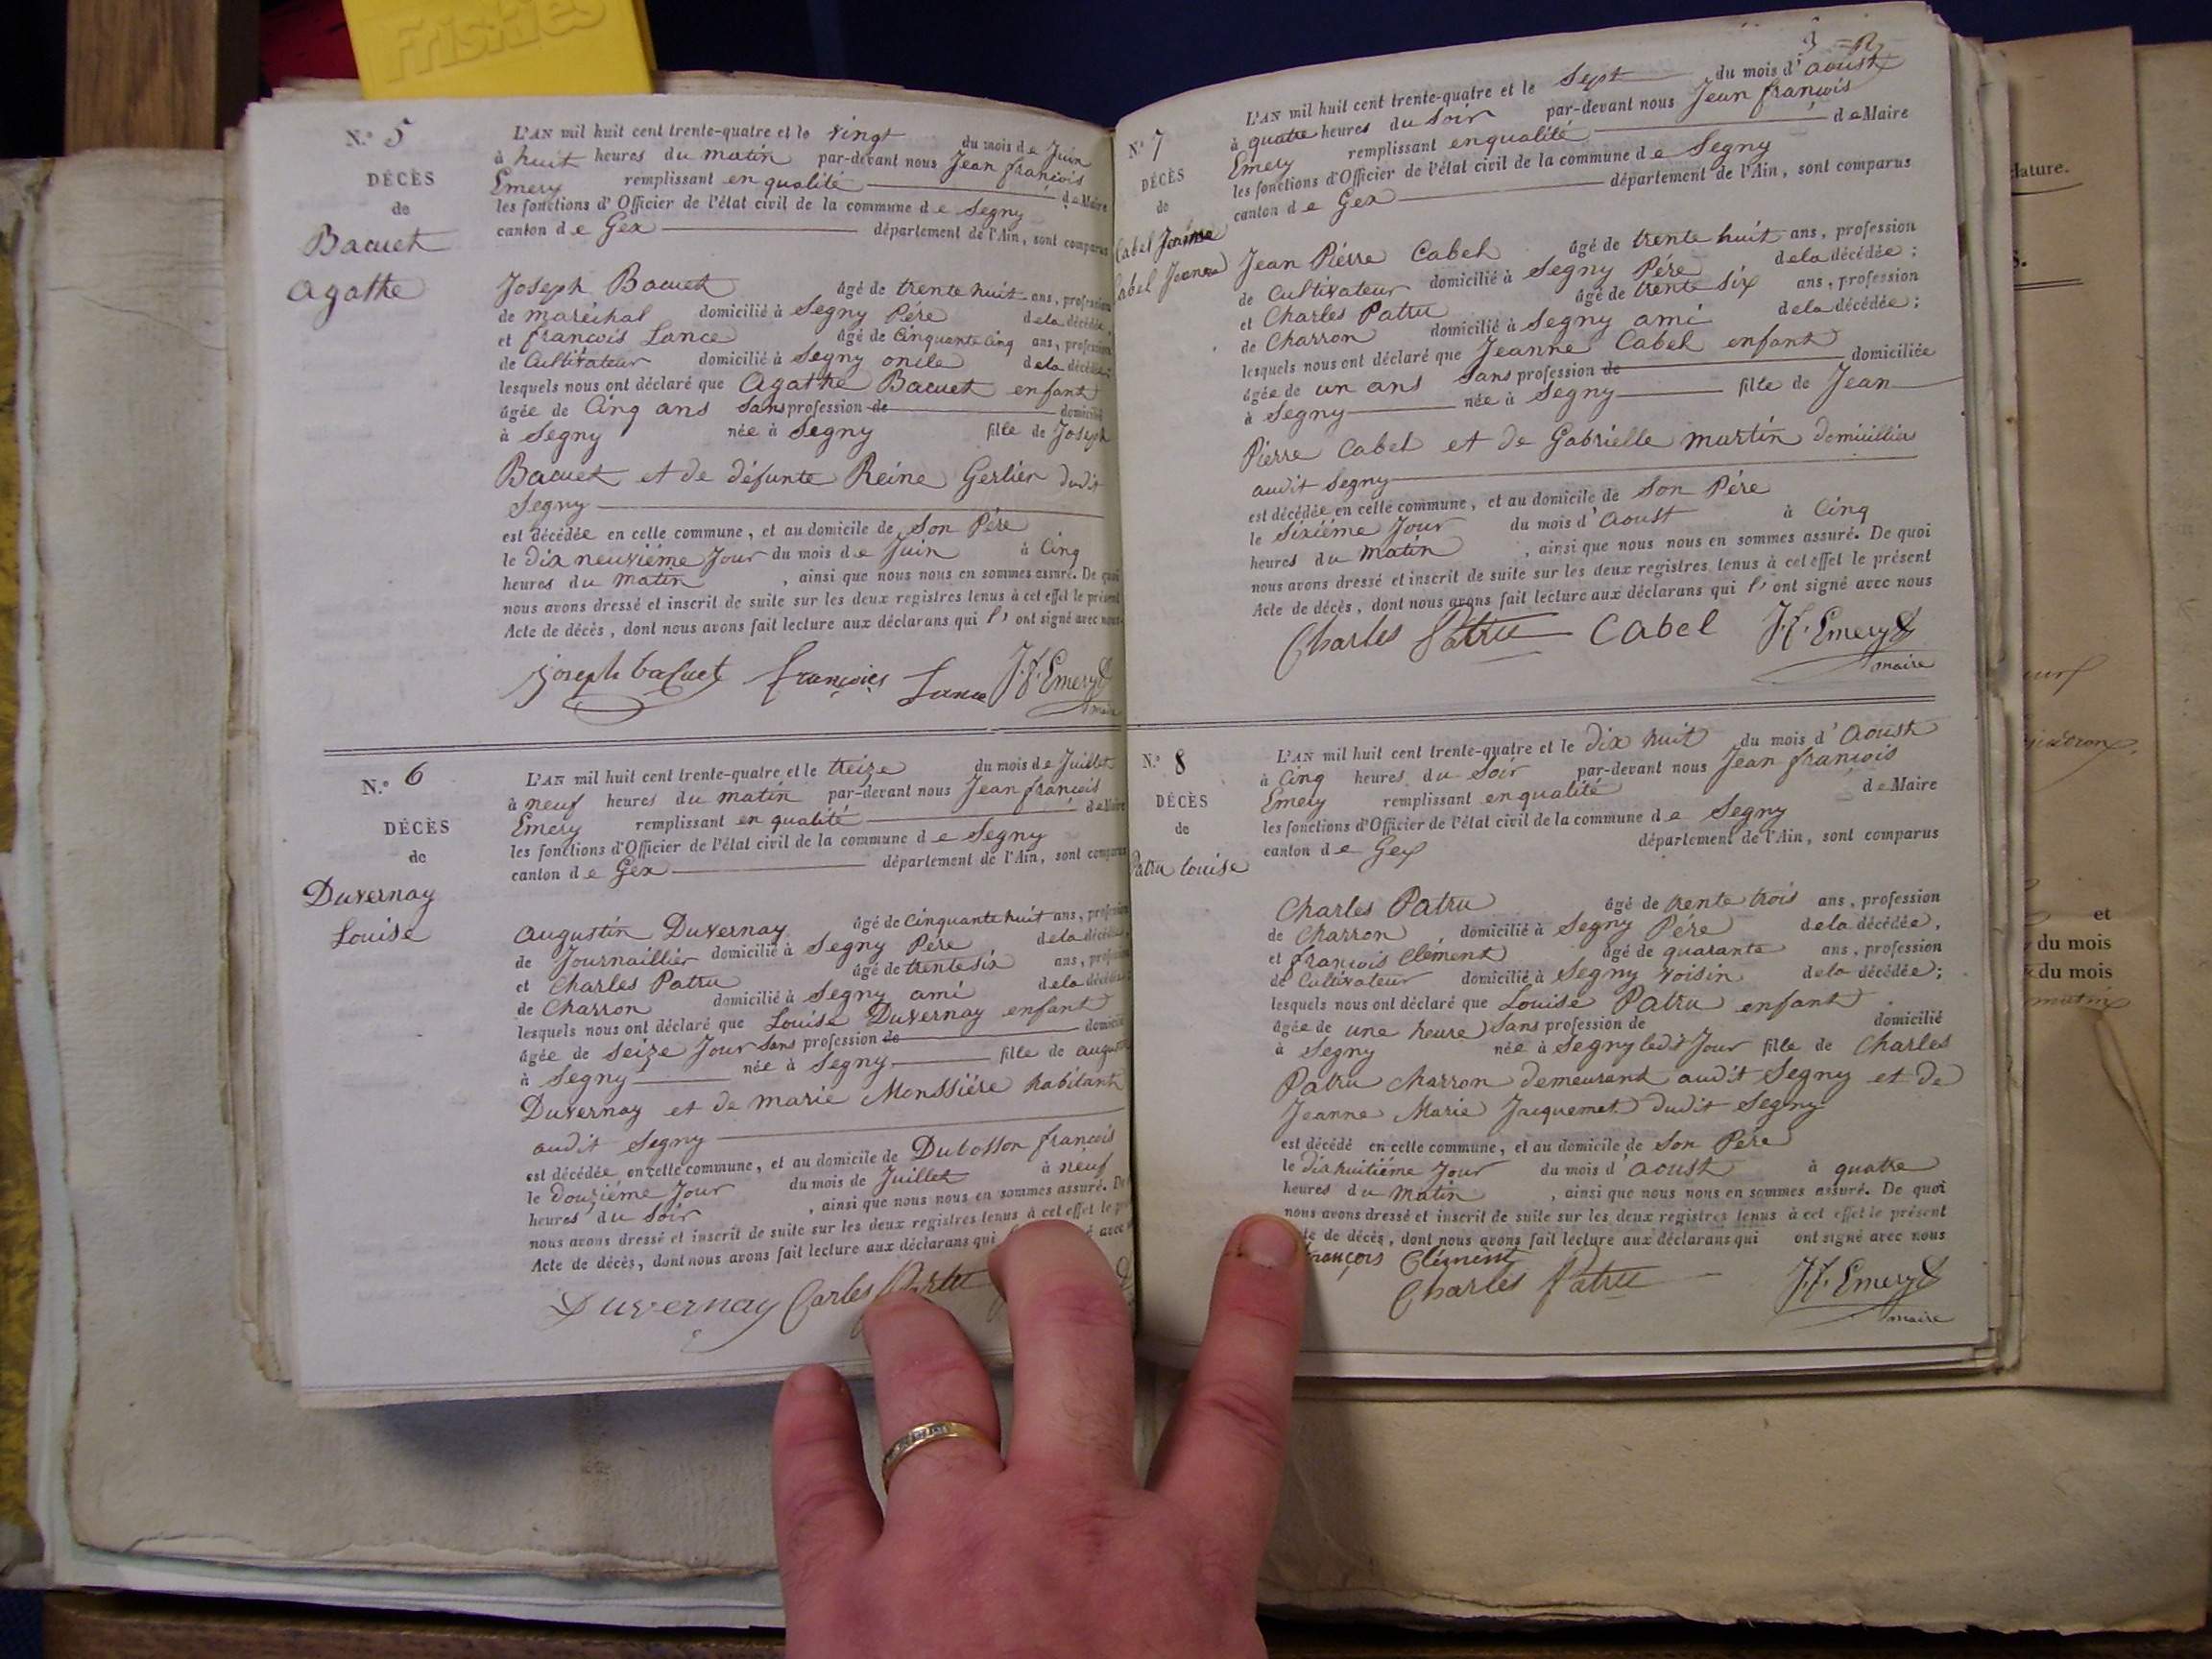 Friskies
N.º 5
DÉCÈS
de
Bacuet
Agathe
L'AN mil huit cent trente-quatre et le vingt du mois de Juin
à huit heures du matin par-devant nous Jean françois
Emery remplissant en qualité de Maire
les fonctions d'Officier de l'état civil de la commune de Segny
canton de Gex département de l'Ain, sont comparus
Joseph Bacuet âgé de trente huit ans, profession
de maréchal domicilié à Segny Pére de la décédée
et françois Lance âgé de Cinquante Cinq ans, profession
de Cultivateur domicilié à Segny oncle de la décédée;
lesquels nous ont déclaré que Agathe Bacuet enfant
âgée de Cinq ans Sans profession de domicilié
à Segny née à Segny fille de Joseph
Bacuet et de défunte Reine Gerlier dudit
Segny
est décédée en celle commune, et au domicile de Son Pére
le dix neuviéme Jour du mois de Juin à Cinq
heures du matin , ainsi que nous nous en sommes assuré. De quoi
nous avons dressé et inscrit de suite sur les deux registres tenus à cet effet le présent
Acte de décès, dont nous avons fait lecture aux déclarans qui l' ont signé avec nous
joseph bacuet françois Lance J. f. Emery
maire
N.º 6
DÉCÈS
de
Duvernay
Louise
L'AN mil huit cent trente-quatre et le treize du mois de Juillet
à neuf heures du matin par-devant nous Jean françois
Emery remplissant en qualité de Maire
les fonctions d'Officier de l'état civil de la commune de Segny
canton de Gex département de l'Ain, sont comparus
Augustin Duvernay âgé de Cinquante huit ans, profession
de Journaillier domicilié à Segny Pére de la décédée
et Charles Patru âgé de trente six ans, profession
de Charron domicilié à Segny ami de la décédée
lesquels nous ont déclaré que Louise Duvernay enfant
âgée de Seize Jour Sans profession de domicilié
à Segny née à Segny fille de augustin
Duvernay et de marie Monssiére habitant
audit Segny
est décédée en celle commune, et au domicile de Dubosson françois
le douziéme Jour du mois de Juillet à neuf
heures du Soir , ainsi que nous nous en sommes assuré. De
nous avons dressé et inscrit de suite sur les deux registres tenus à cet effet le
Acte de décès, dont nous avons fait lecture aux déclarans qui avec
Duvernay Carles
N.º 7
DÉCÈS
de
Cabel Jeanne
Cabel Jeanne
L'AN mil huit cent trente-quatre et le Sept du mois d'aoust
à quatre heures du Soir par-devant nous Jean françois
Emery remplissant en qualité de Maire
les fonctions d'Officier de l'état civil de la commune de Segny
canton de Gex département de l'Ain, sont comparus
Jean Piérre Cabel âgé de trente huit ans, profession
de Cultivateur domicilié à Segny Pére de la décédée;
et Charles Patru âgé de trente six ans, profession
de Charron domicilié à Segny ami de la décédée;
lesquels nous ont déclaré que Jeanne Cabel enfant
âgée de un ans Sans profession de domiciliée
à Segny née à Segny fille de Jean
Piérre Cabel et de Gabrielle martin domicilliés
audit Segny
est décédée en celle commune, et au domicile de Son Pére
le Sixiéme Jour du mois d'aoust à Cinq
heures du matin , ainsi que nous nous en sommes assuré. De quoi
nous avons dressé et inscrit de suite sur les deux registres tenus à cet effet le présent
Acte de décès, dont nous avons fait lecture aux déclarans qui l' ont signé avec nous
Charles Patru Cabel J. f. Emery
maire
N.º 8
DÉCÈS
de
Patru Louise
L'AN mil huit cent trente-quatre et le dix huit du mois d'Aoust
à Cinq heures du Soir par-devant nous Jean françois
Emery remplissant en qualité de Maire
les fonctions d'Officier de l'état civil de la commune de Segny
canton de Gex département de l'Ain, sont comparus
Charles Patru âgé de trente trois ans, profession
de Charron domicilié à Segny Pére de la décédée,
et françois Clément âgé de quarante ans, profession
de Cultivateur domicilié à Segny voisin de la décédée;
lesquels nous ont déclaré que Louise Patru enfant
âgée de une heure Sans profession de domicilié
à Segny née à Segny ledit Jour fille de Charles
Patru Charron demeurant audit Segny et de
Jeanne Marie Jacquemet dudit Segny
est décédé en celle commune, et au domicile de Son Pére
le dixhuitiéme Jour du mois d'aoust à quatre
heures du matin , ainsi que nous nous en sommes assuré. De quoi
nous avons dressé et inscrit de suite sur les deux registres tenus à cet effet le présent
de décès, dont nous avons fait lecture aux déclarans qui ont signé avec nous
françois Clément
Charles Patru J. f. Emery
maire
et
du mois
du mois
matin